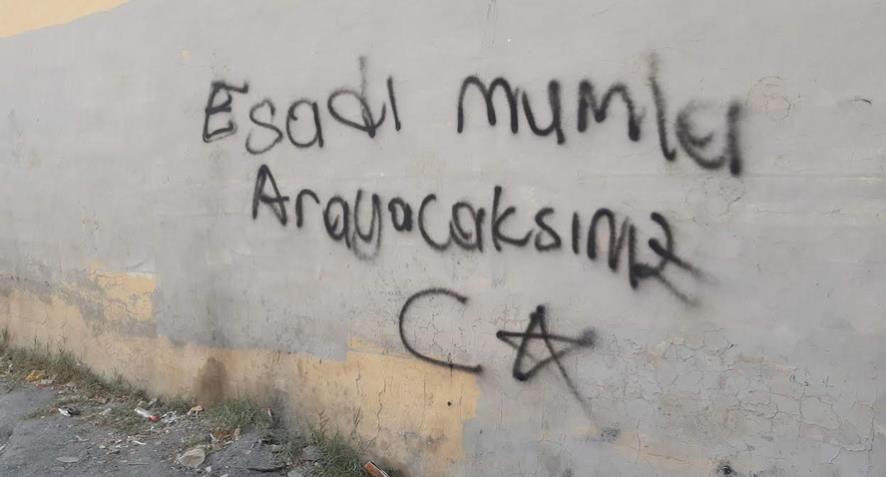 Esadı mumler
Arayacaksınız